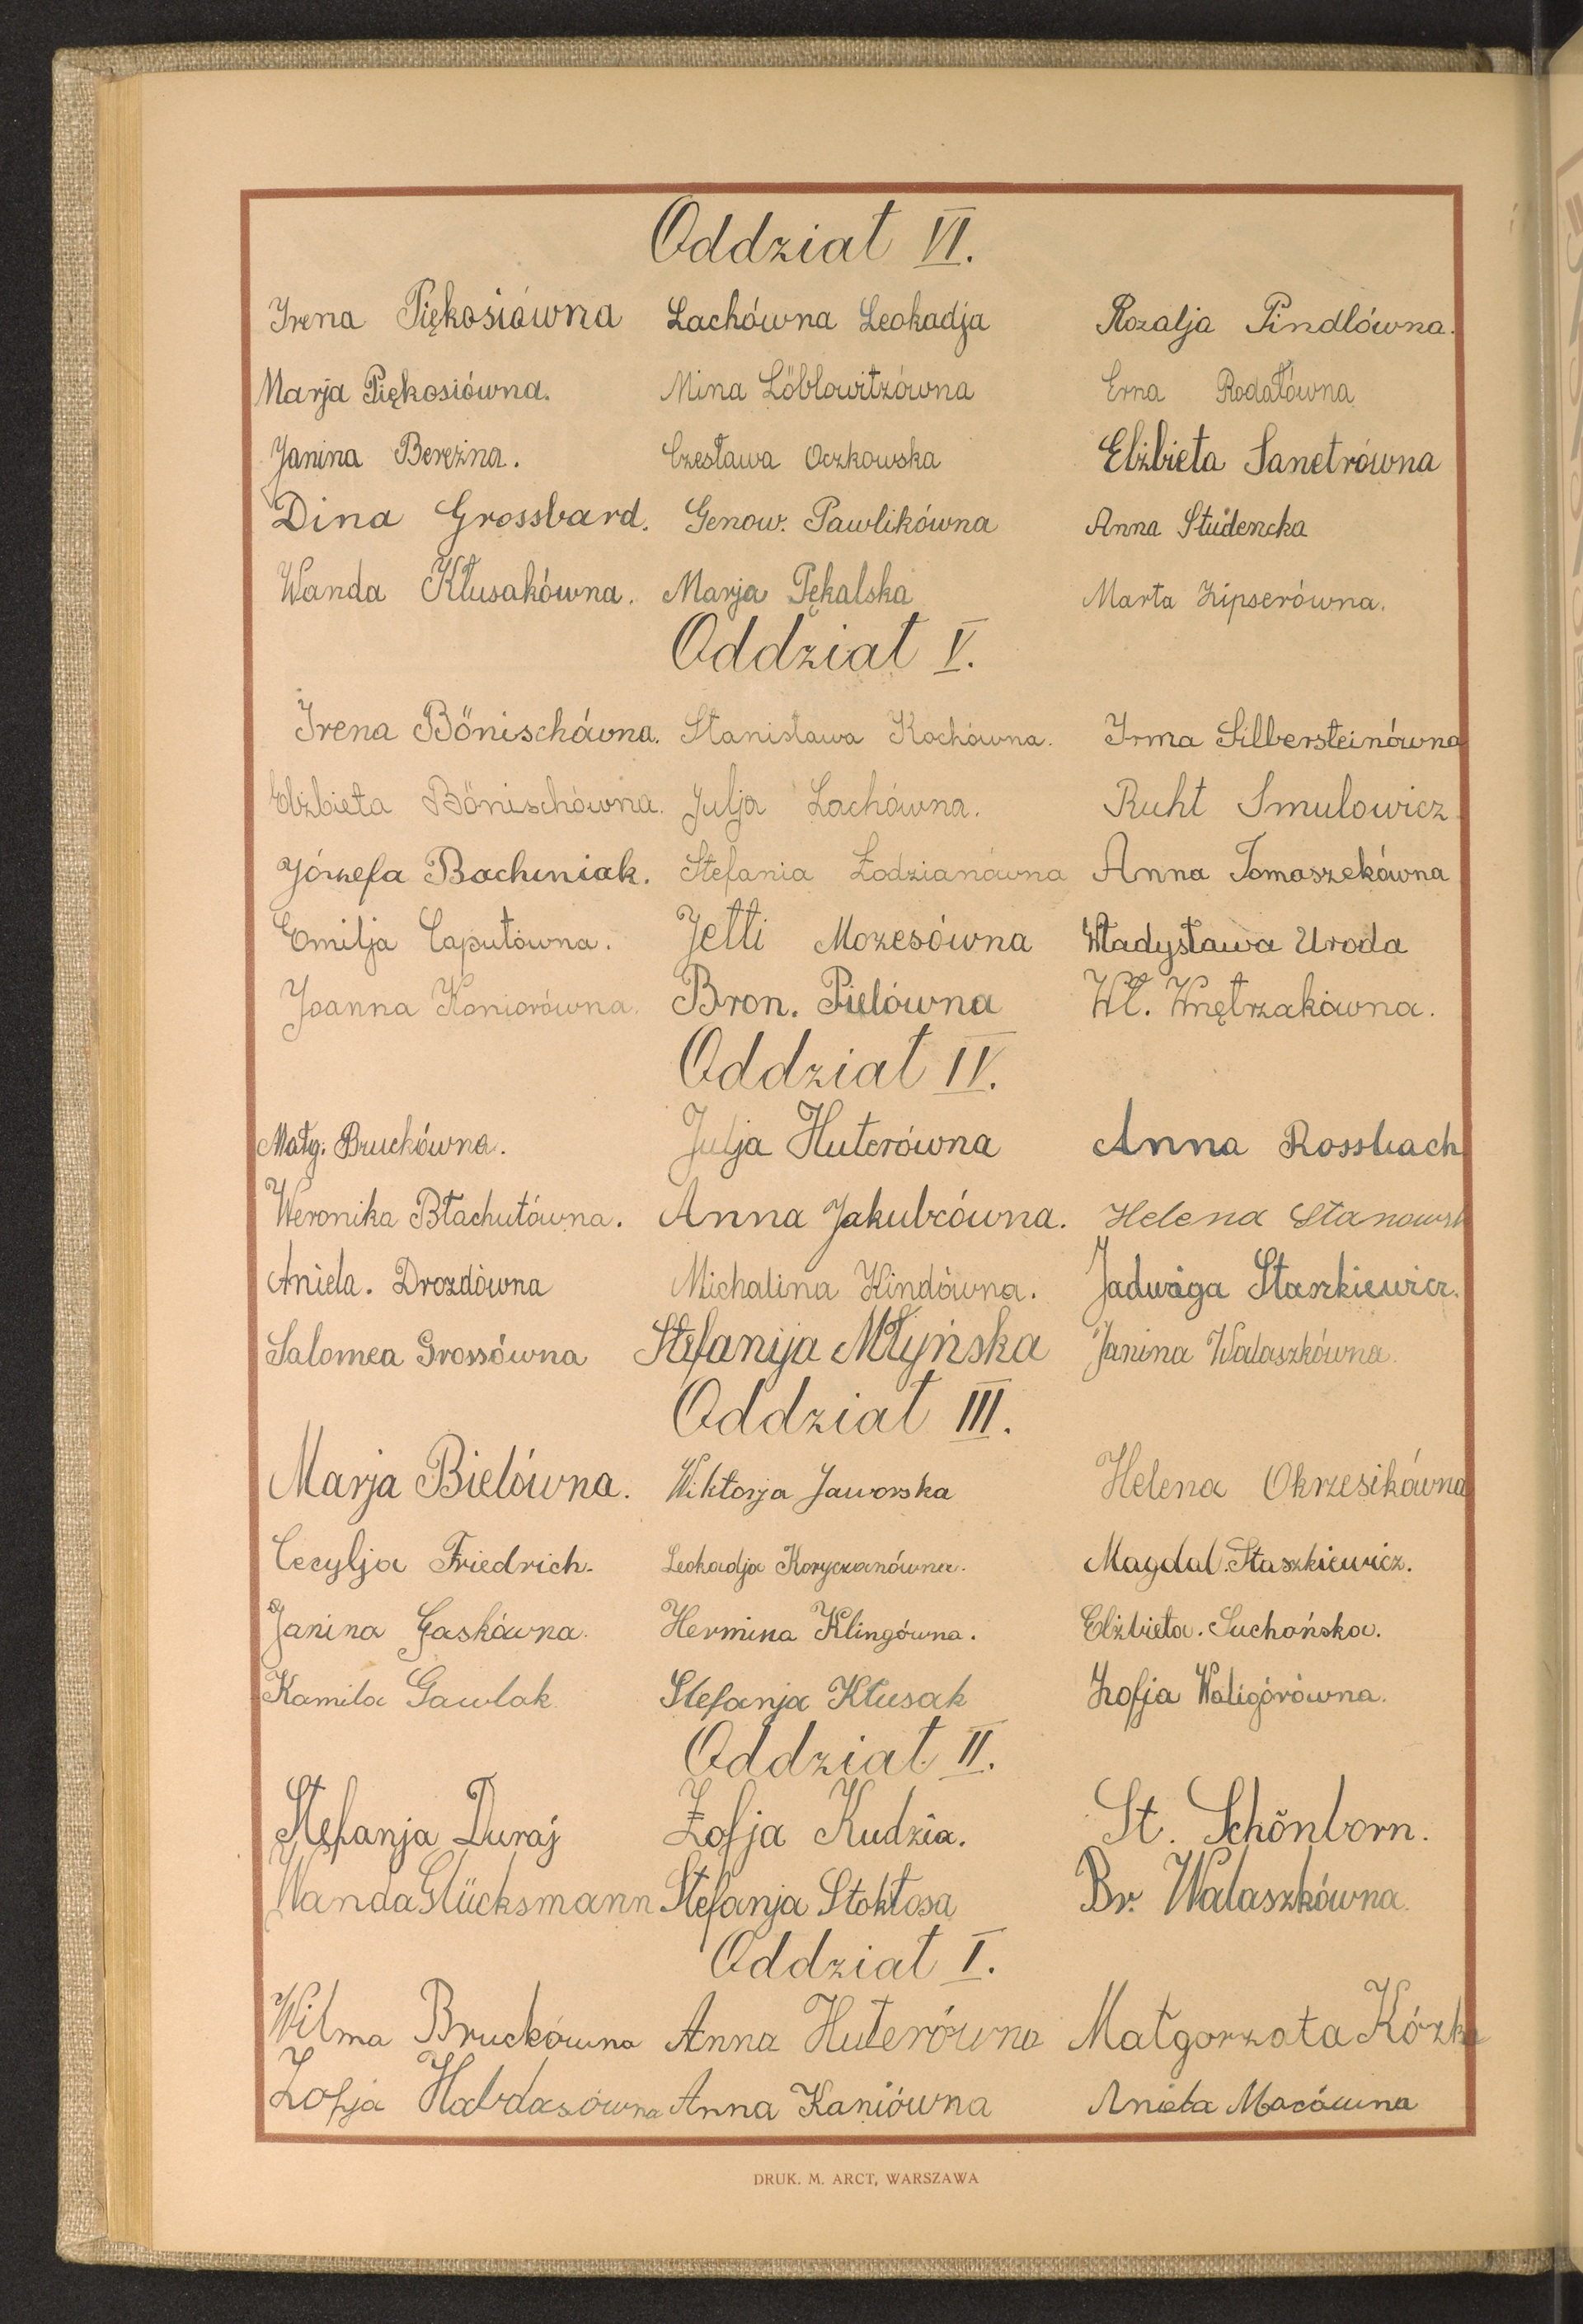 Oddział VI.
Irena Piękosiówna Lachówna Leokadja Rozalja Pindlówna.
Marja Piękosiówna. Mina Löblowitzówna Erna Rodałówna
Janina Bereźna. Czesława Oczkowska Elżbieta Sanetrówna
Dina Grossbard. Genow. Pawlikówna Anna Studencka
Wanda Kłusakówna. Marja Pękalska Marta Zipserówna.
Oddział V.
Irena Bönischówna. Stanisława Kochówna. Irma Silbersteinówna
Elżbieta Bönischówna. Julja Lachówna. Ruht Smulowicz
Józefa Bachniak. Stefania Łodzianówna Anna Tomaszekówna
Emilja Caputówna. Jetti Mozesówna Władysława Uroda
Joanna Koniorówna. Bron. Pielówna Wł. Wnętrzakówna.
Oddział IV.
Małg. Bruckówna. Julja Huterówna Anna Rossbach
Weronika Błachutówna. Anna Jakubcówna. Helena
Aniela. Drozdówna Michalina Kindówna. Jadwiga Staszkiewicz.
Salomea Grossówna Stefanija Młyńska Janina Walaszkówna.
Oddział III.
Marja Bielówna. Wiktorja Jaworska Helena Okrzesikówna
Cecylja Friedrich. Leokadja Koryczanówna. Magdal. Staszkiewicz.
Janina Gaskówna. Hermina Klingówna. Elżbieta. Suchońska.
Kamila Gawlak Stefanja Kłusak Zofja Waligórówna.
Oddział II.
Stefanja Duraj Zofja Kudzia. St. Schönborn.
Wanda Glücksmann Stefanja Stokłosa Br. Walaszkówna.
Oddział I.
Wilma Bruckówna Anna Huterówna Małgorzata Kózka
Zofja Habdasówna Anna Kaniówna Aniela Macówna
DRUK. M. ARCT, WARSZAWA